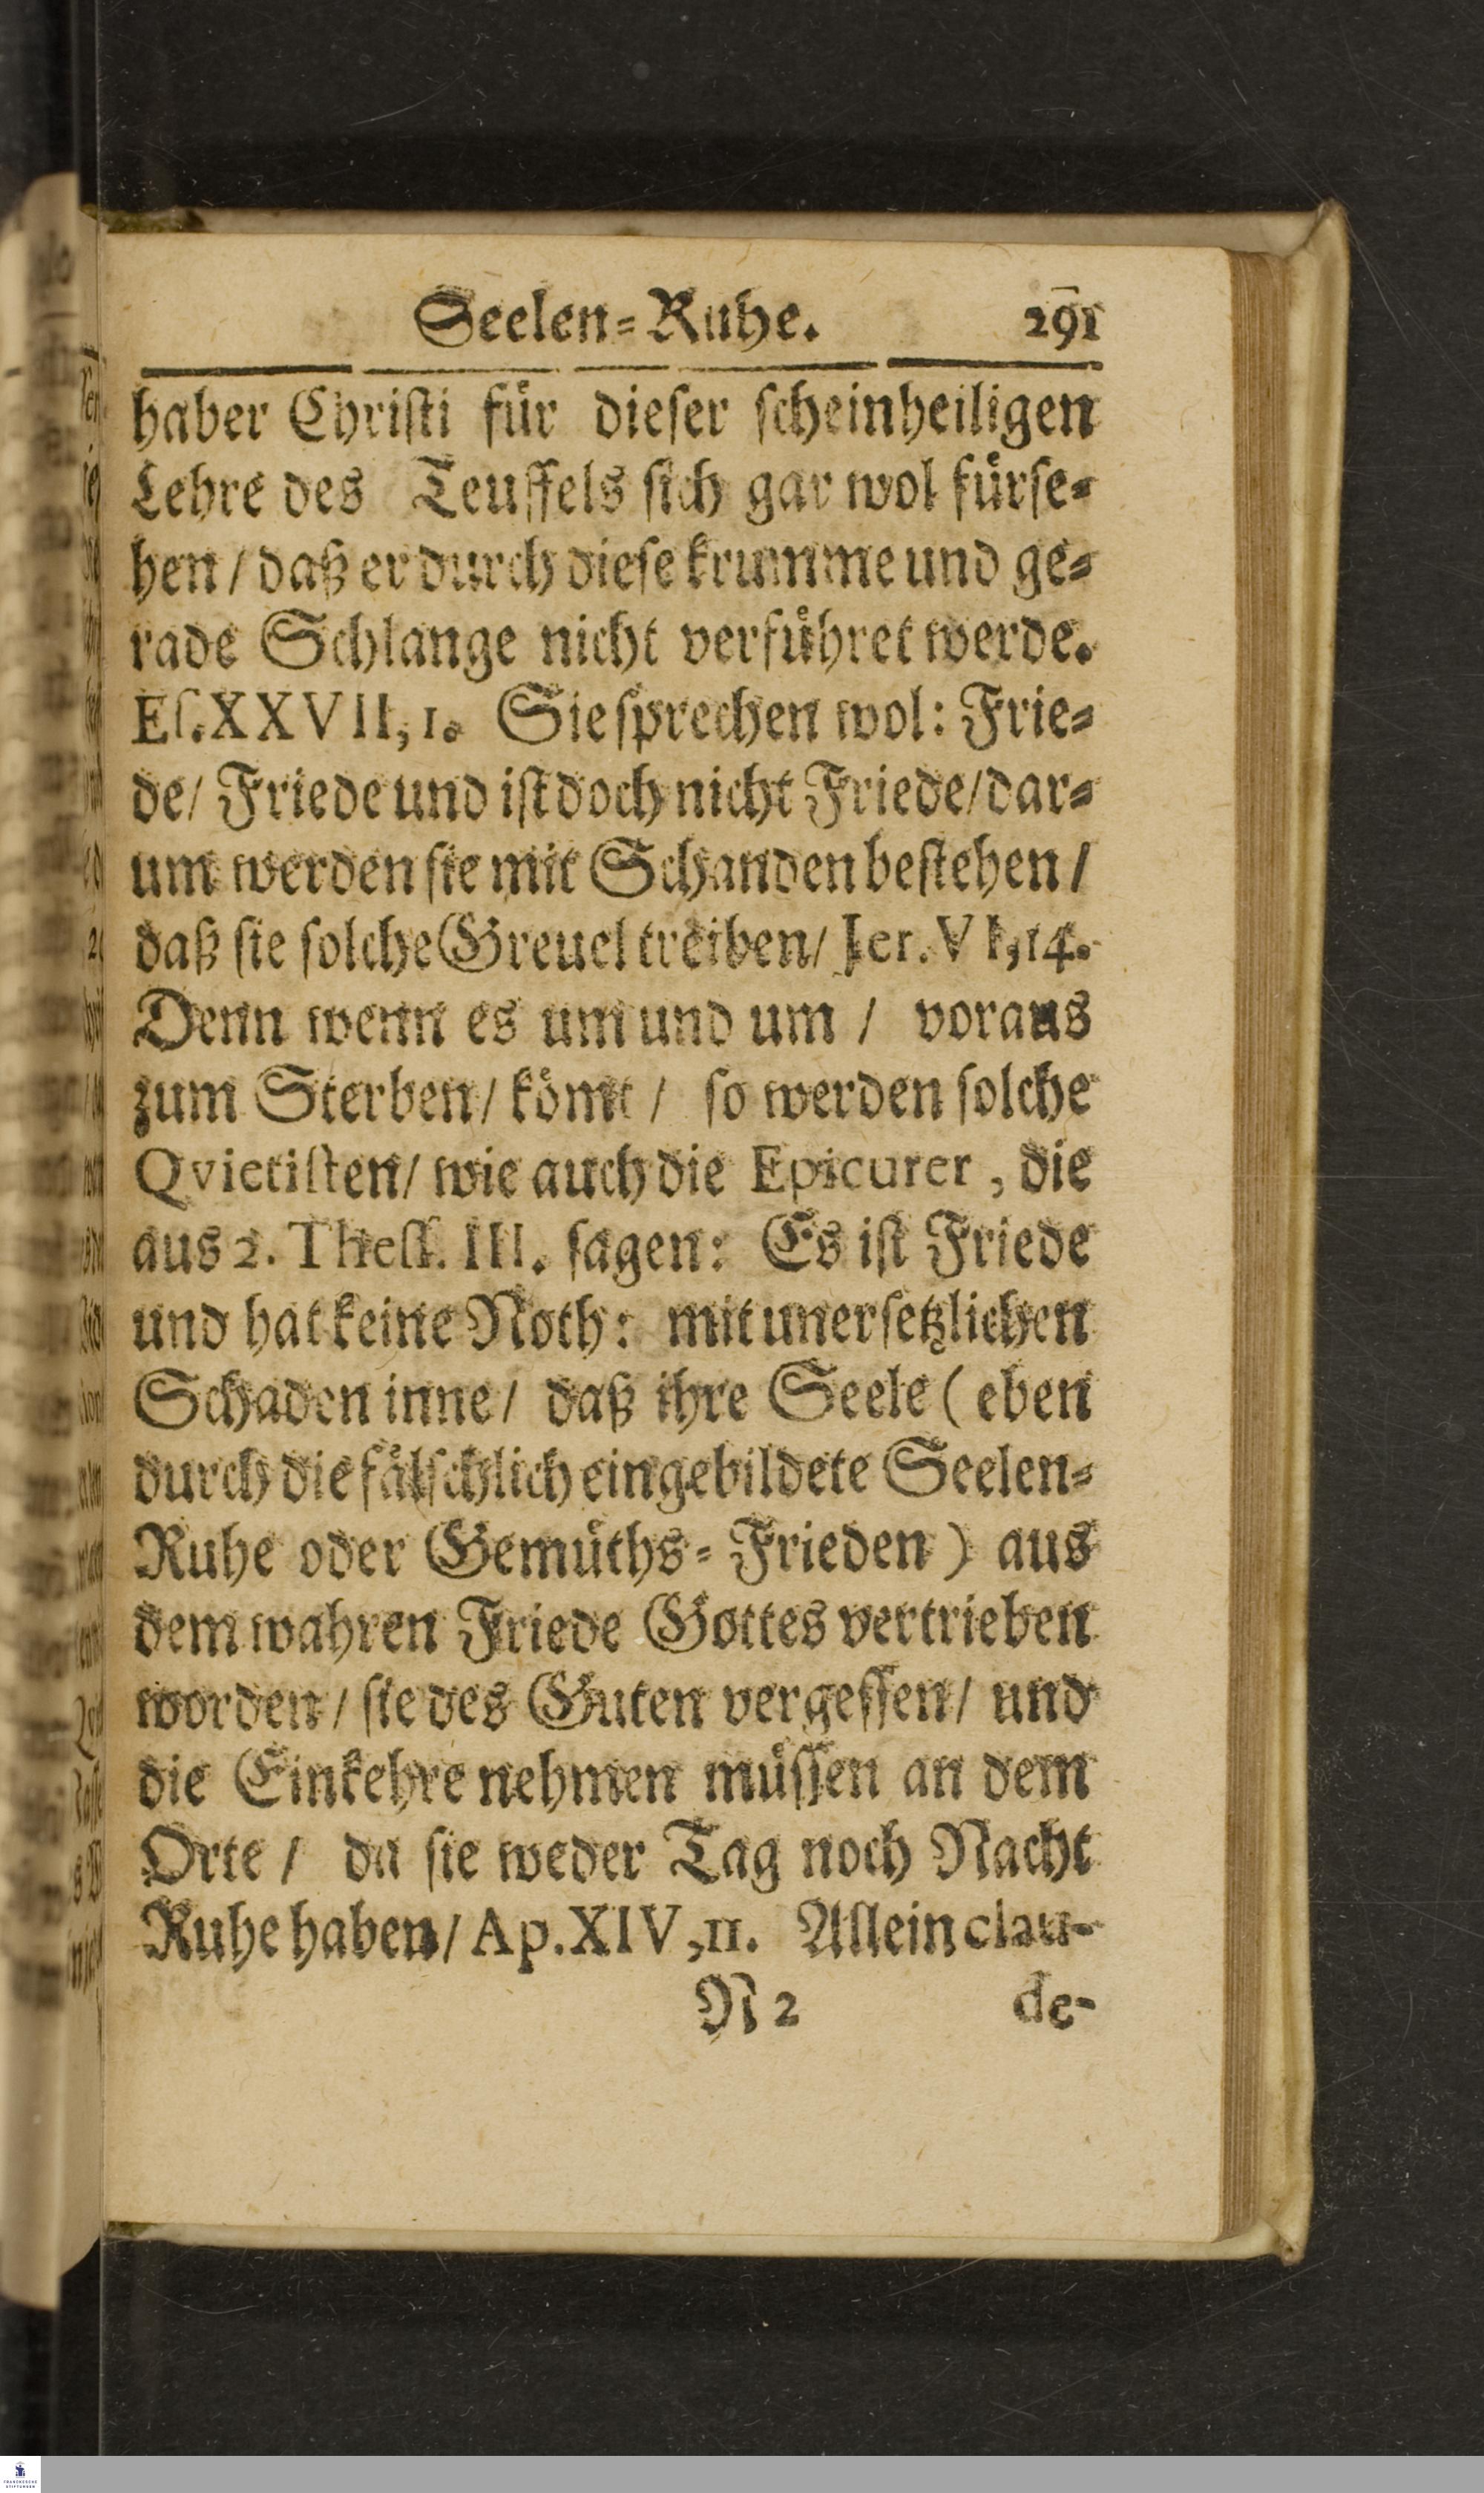 Seelen=Ruhe. 291
haber Chriſti für dieſer ſcheinheiligen
Lehre des Teuffels ſich gar wol fürſe=
hen / daß er durch dieſe krumme und ge=
rade Schlange nicht verführet werde.
Eſ. XXVII, 1. Sie ſprechen wol: Frie=
de/ Friede und iſt doch nicht Friede/ dar=
um werden ſie mit Schanden beſtehen /
daß ſie ſolche Greuel treiben/ Jer. VI, 14.
Denn wenn es um und um / voraus
zum Sterben/ kömt / ſo werden ſolche
Qvietiſten/ wie auch die Epicurer, die
aus 2. Theſſ. III. ſagen: Es iſt Friede
und hat keine Noth: mit unerſetzlichen
Schaden inne / daß ihre Seele ( eben
durch die fälſchlich eingebildete Seelen=
Ruhe oder Gemüths=Frieden ) aus
dem wahren Friede Gottes vertrieben
worden / ſie des Guten vergeſſen/ und
die Einkehre nehmen müſſen an dem
Orte / da ſie weder Tag noch Nacht
Ruhe haben/ Ap. XIV, 11. Allein clau-
N 2 de-
FRANCKESCHE
STIFTUNGEN